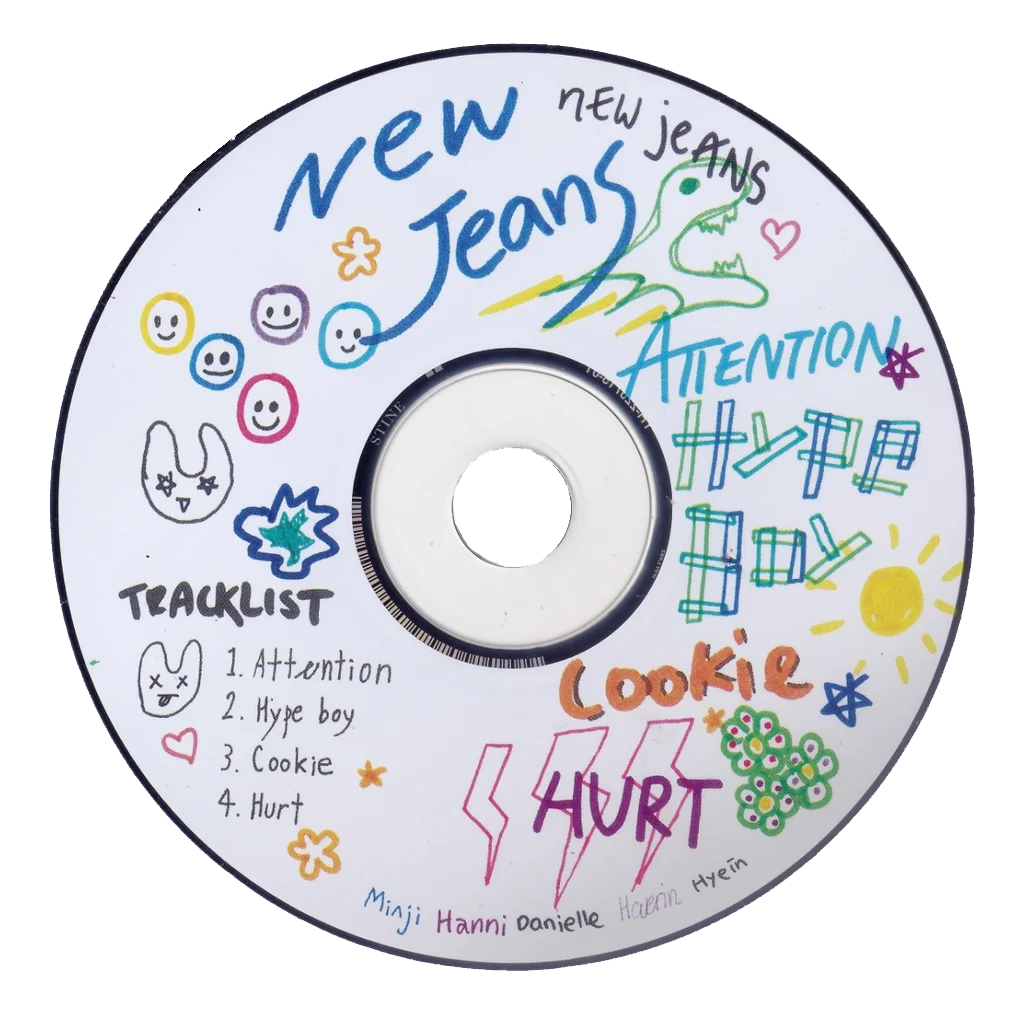 New
Jeans
NEW jeANS
ATTENTION
HYPE
BOY
TRACKLIST
1. Attention
2. Hype boy
3. Cookie
4. Hurt
Cookie
HURT
Minji Hanni Danielle Haerin Hyein